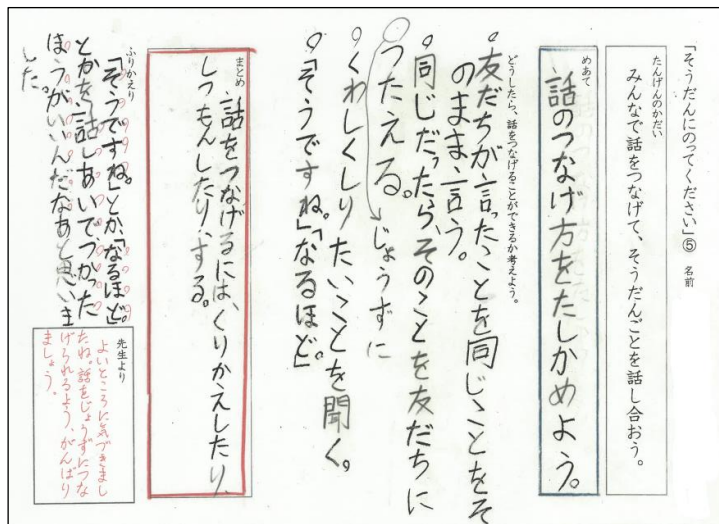 「そうだんにのってください」⑤　名前
たんげんのかだい
みんなで話をつなげて、そうだんごとを話し合おう。
めあて
話のつなげ方をたしかめよう。
どうしたら、話をつなげることができるか考えよう。
友だちが言ったことを同じことをそ
のまま言う。
同じだったら、そのことを友だちに
つたえる。→じょうずに
くわしくしりたいことを聞く。
「そうですね。」「なるほど」
まとめ
話をつなげるには、くりかえしたり、
しつもんしたり、する。
ふりかえり
「そうですね。」とか、「なるほど。」
とかを話しあいでつかった
ほうがいいんだなあと思いま
した。
先生より
よいところに気づきまし
たね。話をじょうずにつな
げられるよう、がんばり
ましょう。